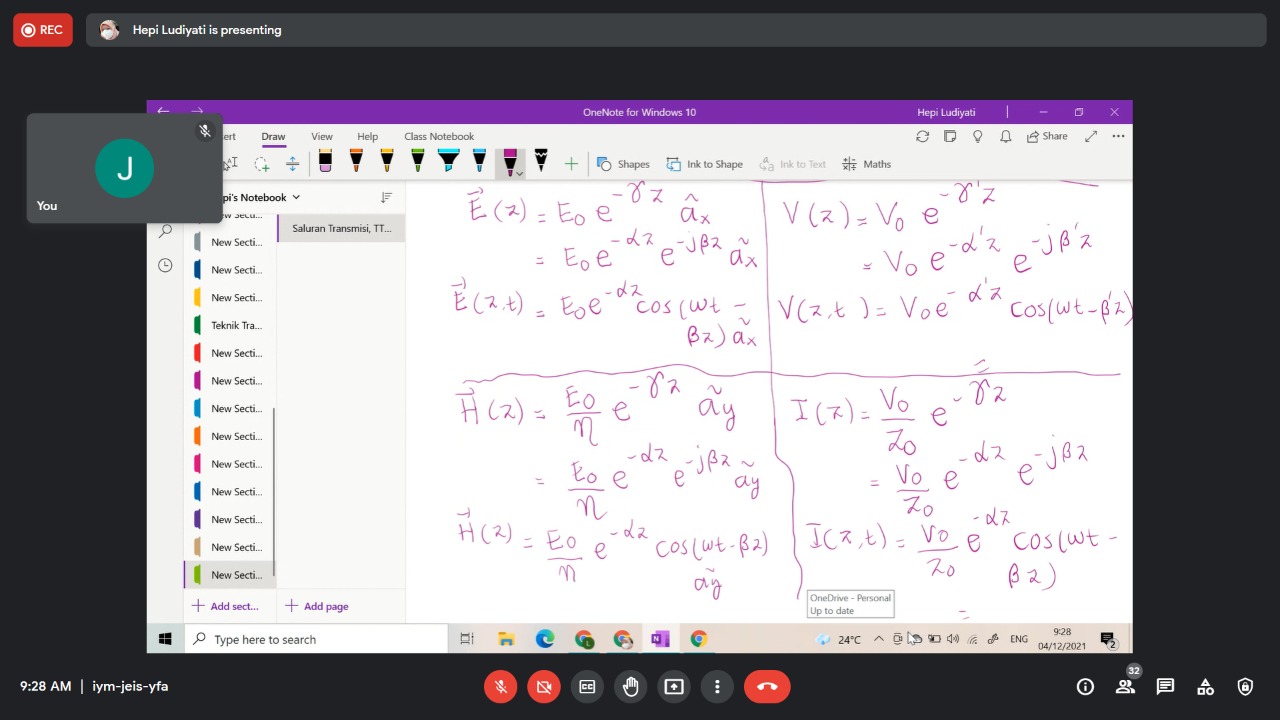 REC
Hepi Ludiyati is presenting
You
J
OneNote for Windows 10
Hepi Ludiyati
ert Draw View Help Class Notebook
Share
Shapes Ink to Shape Ink to Text Maths
pi's Notebook
Saluran Transmisi, TT...
New Secti...
New Secti...
New Secti...
Teknik Tra...
New Secti...
New Secti...
New Secti...
New Secti...
New Secti...
New Secti...
New Secti...
New Secti...
New Secti...
Add sect...
Add page
E⃗(z) = E₀ e^{-γz} âx
= E₀ e^{-αz} e^{-jβz} ãx
E⃗(z,t) = E₀ e^{-αz} cos(ωt -
βz) ãx
V(z) = V₀ e^{-γ'z}
= V₀ e^{-α'z} e^{-jβ'z}
V(z,t) = V₀ e^{-α'z} cos(ωt-β'z)
H⃗(z) = E₀/η e^{-γz} ãy
= E₀/η e^{-αz} e^{-jβz} ãy
H⃗(z) = E₀/η e^{-αz} cos(ωt-βz)
ãy
I(z) = V₀/Z₀ e^{-γz}
= V₀/Z₀ e^{-αz} e^{-jβz}
I(z,t) = V₀/Z₀ e^{-αz} cos(ωt -
βz)
OneDrive - Personal
Up to date
Type here to search
24°C
ENG
9:28
04/12/2021
2
9:28 AM | iym-jeis-yfa
32